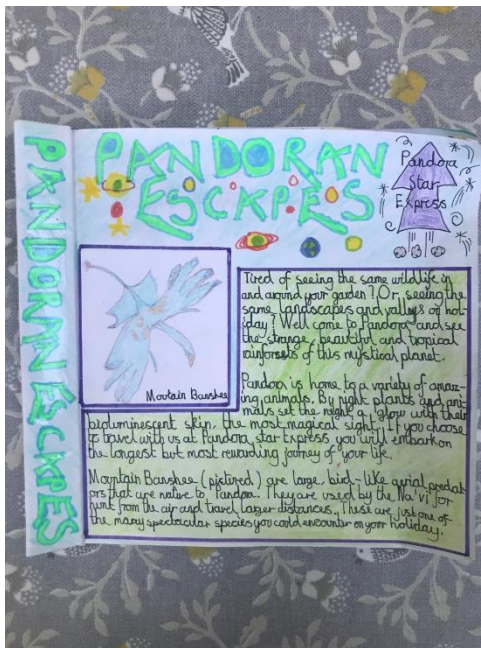 PANDORAN ESCAPES
PANDORAN
ESCAPES
Pandora
Star
Express
Mountain Banshee
Tired of seeing the same wildlife in
and around your garden? Or seeing the
same landscapes and valleys on hol-
iday? Well come to Pandora and see
the strange, beautiful and tropical
rainforests of this mystical planet.
Pandora is home to a variety of amaz-
ing animals. By night plants and ani-
mals set the night a glow with their
bioluminescent skin, the most magical sight. If you choose
to travel with us at Pandora star Express you will embark on
the longest but most rewarding journey of your life.
Mountain Banshee (pictired) are large, bird-like aerial predat-
ors that are native to Pandora. They are used by the Na'vi for
hunt from the air and travel larger distances. These are just one of
the many spectacular species you could encounter on your holiday.